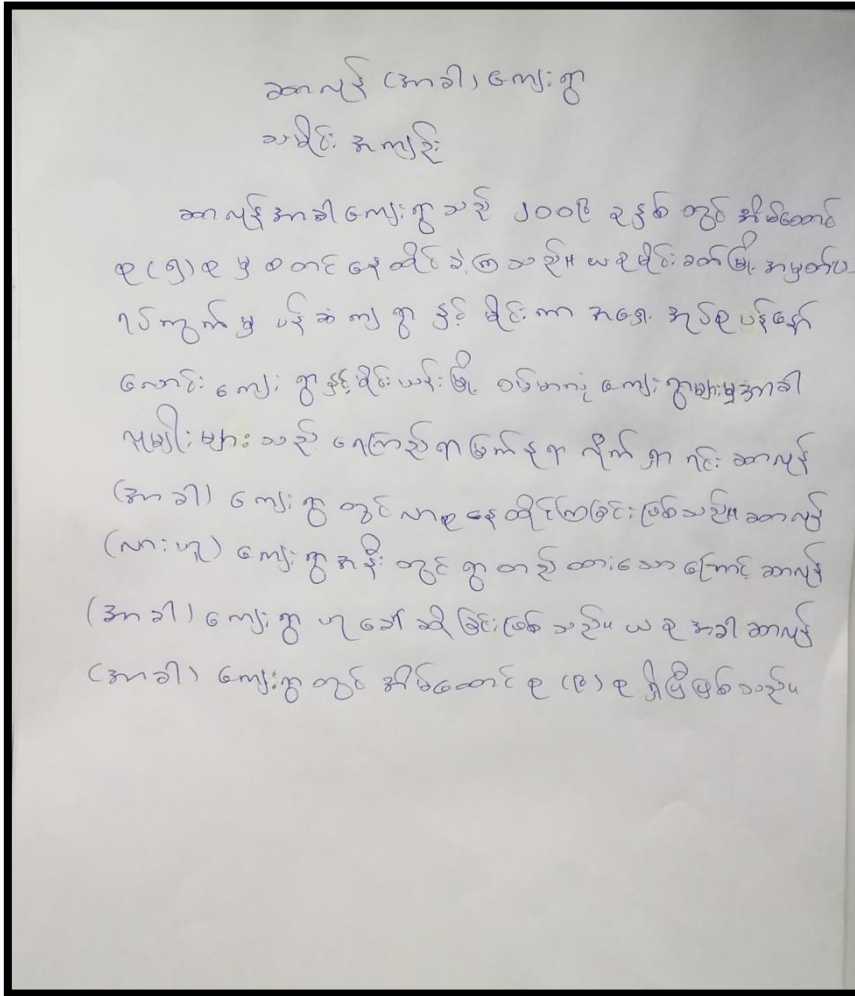 ဆာလုန် (အာခါ) ကျေးရွာ
သမိုင်း အကျဉ်း
ဆာလုန်အာခါကျေးရွာသည် ၂၀၀၆ ခုနှစ် တွင် အိမ်ထောင်
စု (၅) စု မှ စတင် နေထိုင် ခဲ့ကြသည်။ ယခုမိုင်းခတ်မြို့ အမှတ်၊
ရပ်ကွက် မှ ပန်ဆံကျ ရွာ နှင့် မိုင်းကာ အရှေ့ အုပ်စု ပန်နော်
လောင်း ကျေးရွာနှင့်မိုင်းယန်းမြို့ ဝမ်မာကုံ ကျေးရွာများမှအာခါ
လူမျိုးများ သည် ရေကြည်ရာမြက်နုရာ လိုက်ရှာ ရင်း ဆာလုန်
(အာခါ) ကျေးရွာ တွင် လာရနေထိုင်ကြခြင်းဖြစ်သည်။ ဆာလုန်
(လားဟူ) ကျေးရွာအနီး တွင် ရွာတည်ထားသော ကြောင့် ဆာလုန်
(အာခါ) ကျေးရွာ ဟု ခေါ် ဆို ခြင်းဖြစ်သည်။ ယခု အခါ ဆာလုန်
(အာခါ) ကျေးရွာတွင် အိမ်ထောင်စု (၉) စု ရှိပြီဖြစ်သည်။